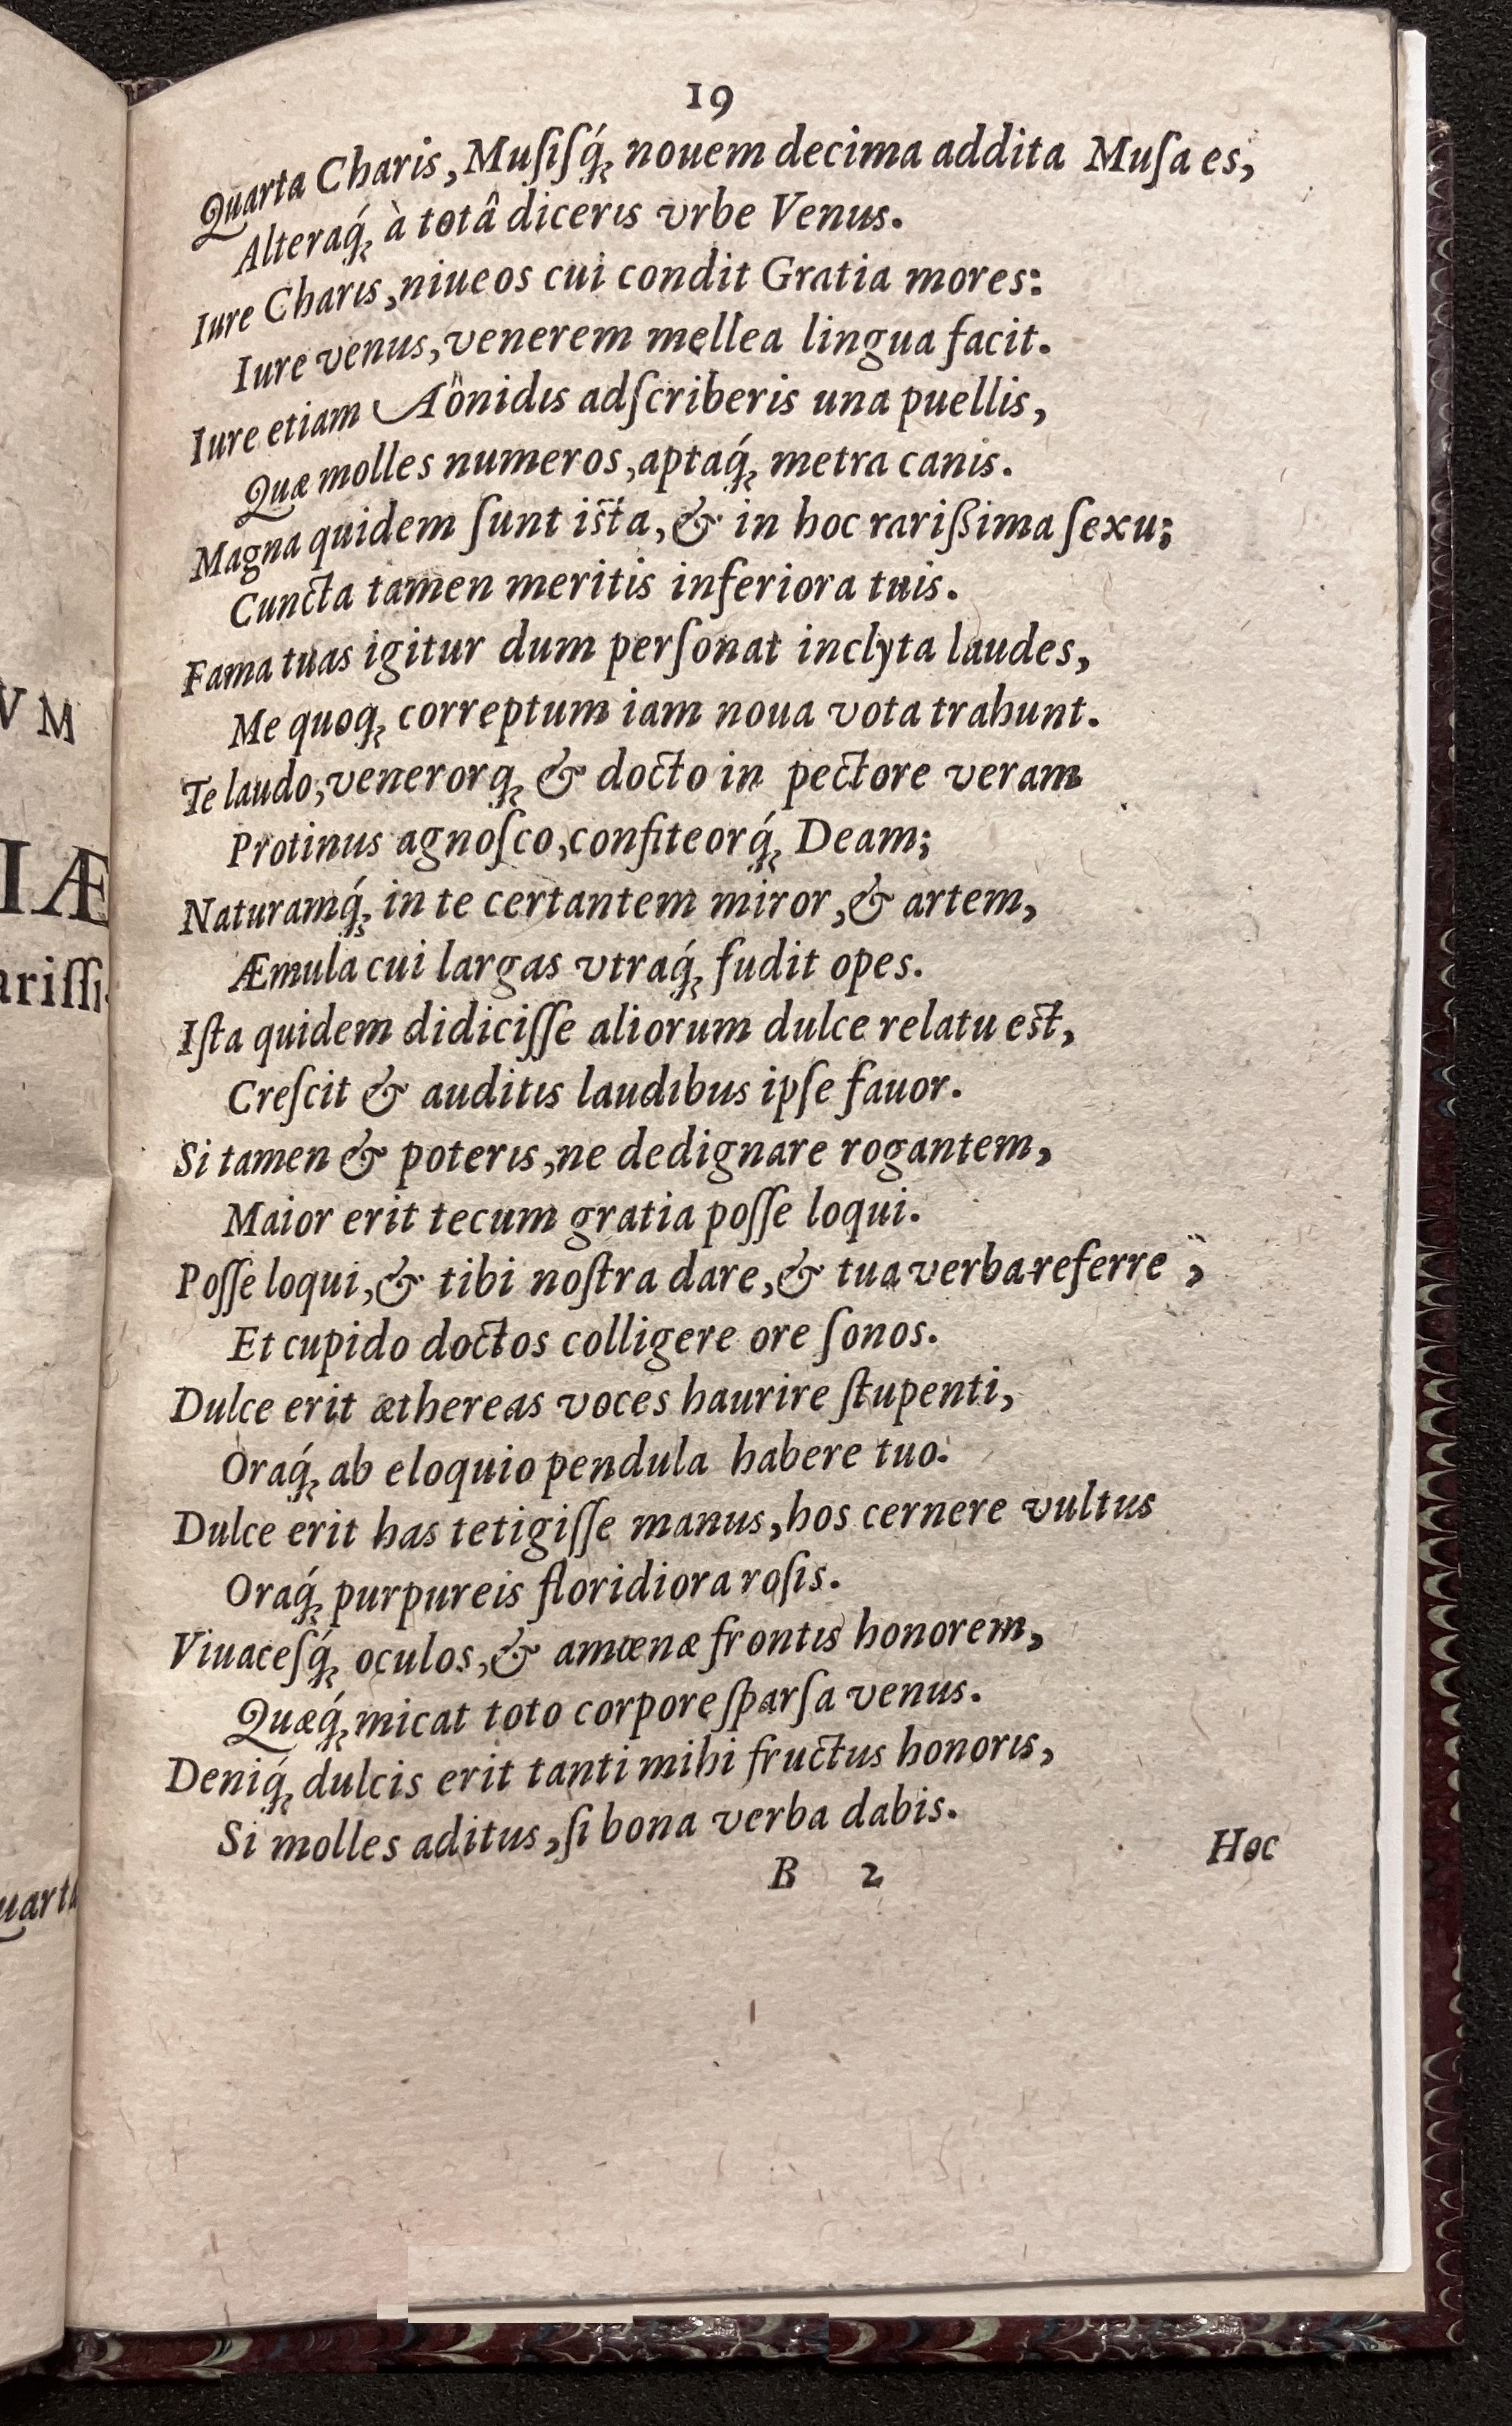 19
Quarta Charis, Muſiſq́; nouem decima addita Muſa es,
Alteraq́; à totâ diceris vrbe Venus.
Iure Charis, niueos cui condit Gratia mores:
Iure venus, venerem mellea lingua facit.
Iure etiam Aönidis adſcriberis una puellis,
Quæ molles numeros, aptaq́; metra canis.
Magna quidem ſunt iſta, & in hoc rarißima ſexu;
Cuncta tamen meritis inferiora tuis.
Fama tuas igitur dum perſonat inclyta laudes,
Me quoq; correptum iam noua vota trahunt.
Te laudo, venerorq; & docto in pectore veram
Protinus agnoſco, confiteorq́; Deam;
Naturamq́; in te certantem miror, & artem,
Æmula cui largas vtraq́; fudit opes.
Iſta quidem didiciſſe aliorum dulce relatu eſt,
Creſcit & auditis laudibus ipſe fauor.
Si tamen & poteris, ne dedignare rogantem,
Maior erit tecum gratia poſſe loqui.
Poſſe loqui, & tibi noſtra dare, & tua verba referre,
Et cupido doctos colligere ore ſonos.
Dulce erit æthereas voces haurire ſtupenti,
Oraq́; ab eloquio pendula habere tuo.
Dulce erit has tetigiſſe manus, hos cernere vultus
Oraq́; purpureis floridiora roſis.
Viuaceſq́; oculos, & amœnæ frontis honorem,
Quæq́; micat toto corpore ſparſa venus.
Deniq́; dulcis erit tanti mihi fructus honoris,
Si molles aditus, ſi bona verba dabis.
B 2
Hoc
VM
IÆ
ariſſi-